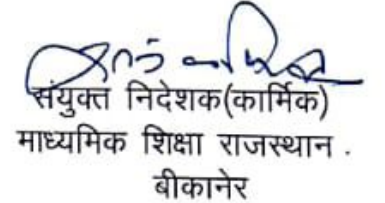 संयुक्त निदेशक(कार्मिक)
माध्यमिक शिक्षा राजस्थान .
बीकानेर